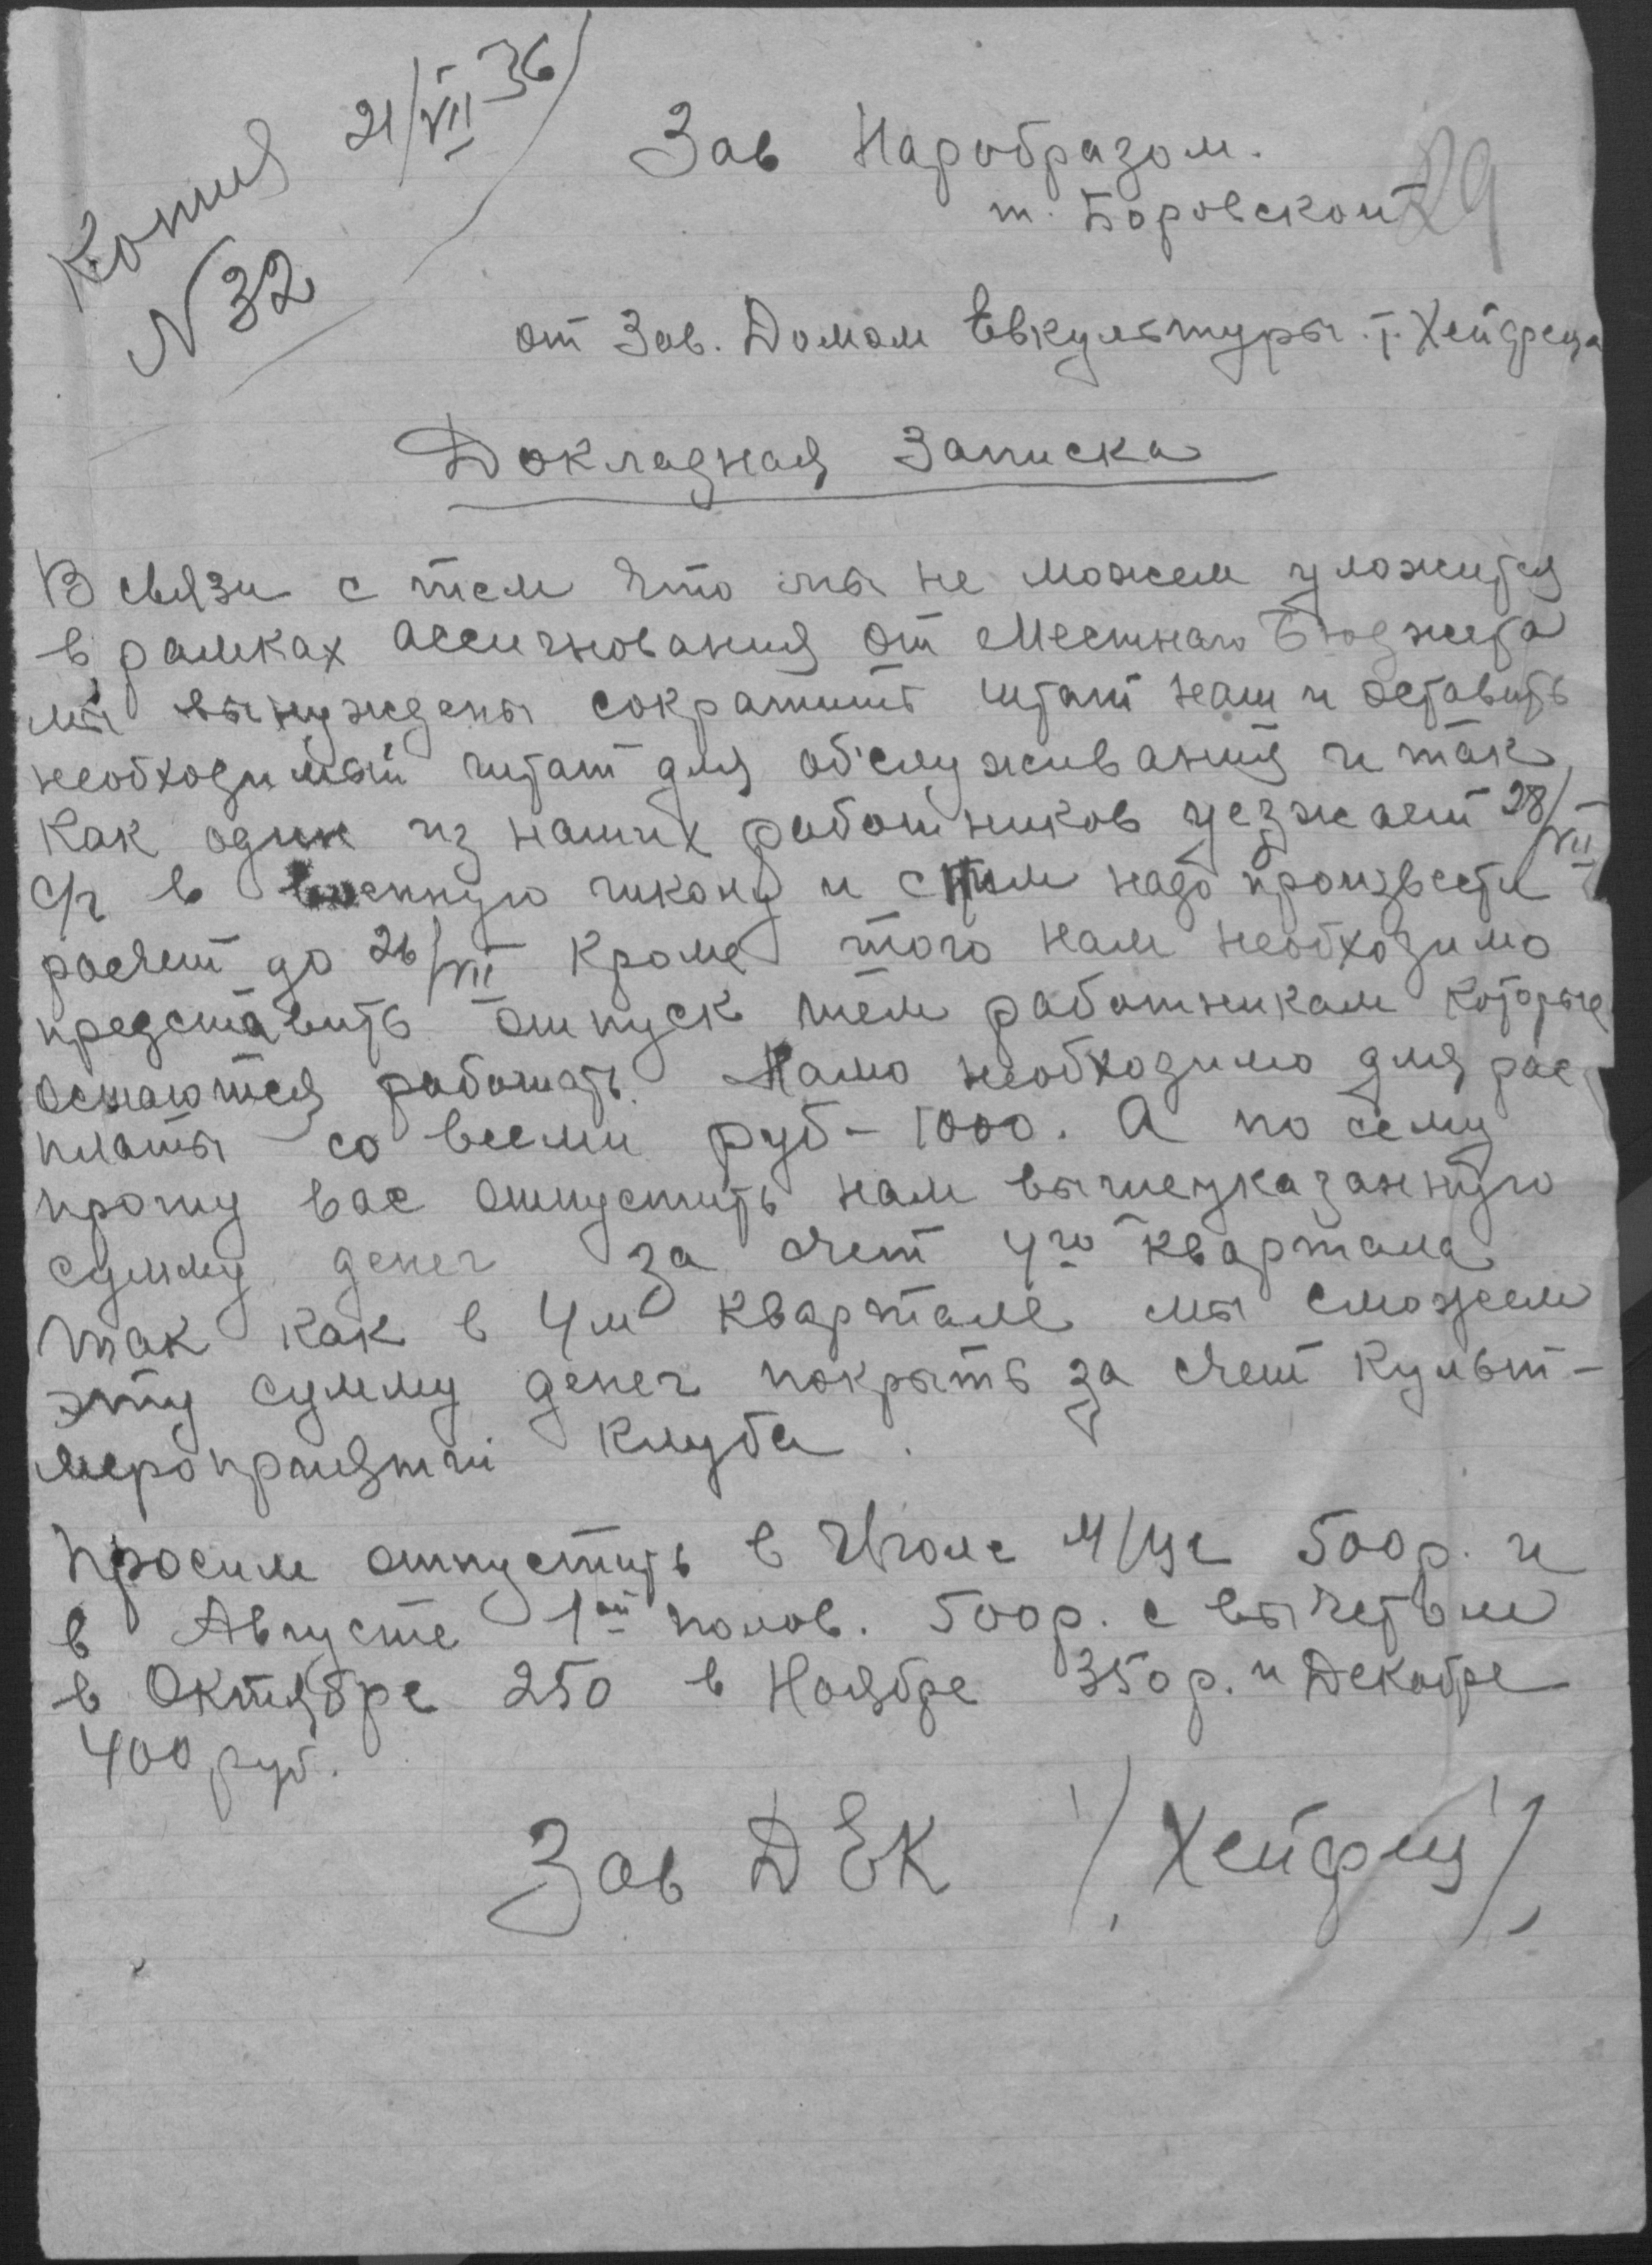 Копия 21/VII 36
N 32
Зав Наробразом.
т. Боровской
29
от Зав. Домом Евкультуры. т. Хейфеца
Докладная Записка
В связи с тем что мы не можем уложится
в рамках ассигнования от Местнаго Бюджета
мы вынуждены сократить штат наш и оставить
необходимый штат для об'служивания и так
как один из наших работников уезжает 28/VII
с/г в военную школу и с ним надо произвести
расчет до 26/VII Кроме того нам необходимо
представить отпуск тем работникам которые
остаются работать. Намо необходимо для рас-
платы со всеми руб - 1000. А по сему
прошу вас отпустить нам вышеуказанную
сумму денег за счет 4го квартала
так как в 4м квартале мы сможем
эту сумму денег покрыть за счет культ-
мероприятий Клуба.
Просим отпустить в Июле м/це 500р. и
в Августе 1ой полов. 500р. с вычетом
в Октябре 250 в Ноябре 350р. и Декабре
400 руб.
Зав ДЕК /Хейфец/